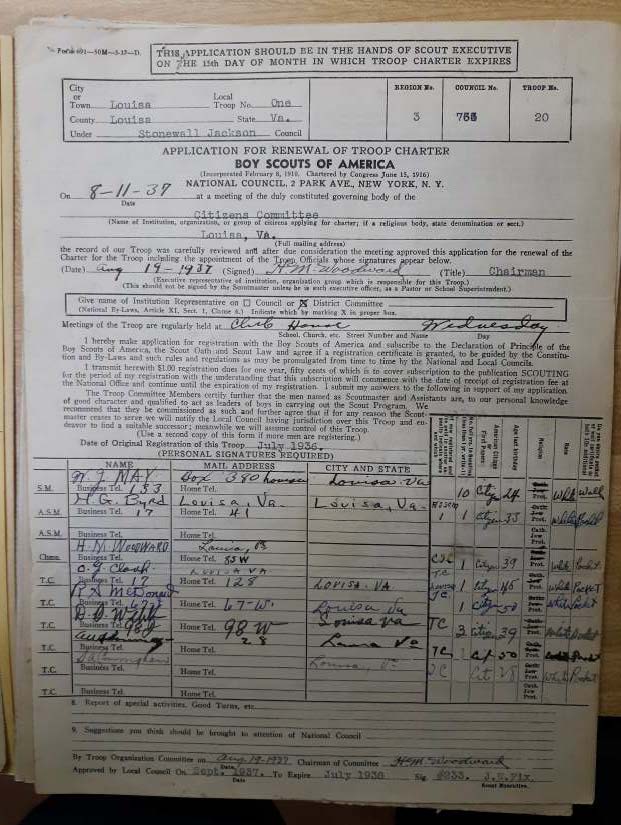 Form 691—50M—3-37—D.
THIS APPLICATION SHOULD BE IN THE HANDS OF SCOUT EXECUTIVE
ON THE 15th DAY OF MONTH IN WHICH TROOP CHARTER EXPIRES
City or Town Louisa Local Troop No. One
County Louisa State Va.
Under Stonewall Jackson Council
REGION No. 3
COUNCIL No.
TROOP No. 20
APPLICATION FOR RENEWAL OF TROOP CHARTER
BOY SCOUTS OF AMERICA
(Incorporated February 8, 1910. Chartered by Congress June 15, 1916)
NATIONAL COUNCIL, 2 PARK AVE., NEW YORK, N. Y.
On 8-11-37 at a meeting of the duly constituted governing body of the
Date
Citizens Committee
(Name of Institution, organization, or group of citizens applying for charter; if a religious body, state denomination or sect.)
Louisa, Va.
(Full mailing address)
the record of our Troop was carefully reviewed and after due consideration the meeting approved this application for the renewal of the
Charter for the Troop including the appointment of the Troop Officials whose signatures appear below.
(Date) Aug 19-1937 (Signed) H.M. Woodward (Title) Chairman
(Executive representative of institution, organization group which is responsible for this Troop.)
(This should not be signed by the Scoutmaster unless he is such executive officer, as a Pastor or School Superintendent.)
Give name of Institution Representative on Council or X District Committee
(National By-Laws, Article XI, Sect. 1, Clause 4.) Indicate which by marking X in proper box.
Meetings of the Troop are regularly held at Club House Wednesday
School, Church, etc. Street Number and Name Day
I hereby make application for registration with the Boy Scouts of America, and subscribe to the Declaration of Principle of the
Boy Scouts of America, the Scout Oath and Scout Law and agree if a registration certificate is granted, to be guided by the Constitu-
tion and By-Laws and such rules and regulations as may be promulgated from time to time by the National and Local Councils.
I transmit herewith $1.00 registration dues for one year, fifty cents of which is to cover subscription to the publication SCOUTING
for the period of my registration with the understanding that this subscription will commence with the date of receipt of registration fee at
the National Office and continue until the expiration of my registration. I submit my answers to the following in support of my application.
The Troop Committee Members certify further that the men named as Scoutmaster and Assistants are, to our personal knowledge
of good character and qualified to act as leaders of boys in carrying out the Scout Program. We
recommend that they be commissioned as such and further agree that if for any reason the Scout-
master ceases to serve we will notify the Local Council having jurisdiction over this Troop and en-
deavor to find a suitable successor; meanwhile we will assume control of this Troop.
(Use a second copy of this form if more men are registering.)
Date of Original Registration of this Troop July 1936.
(PERSONAL SIGNATURES REQUIRED)
NAME MAIL ADDRESS CITY AND STATE
American Citizen or First Papers Age last birthday Religion Race
W. J. MAY Box 380 Louisa Va
S.M. Business Tel. 133 Home Tel. 10 Citizen 24 Prot. White
H.G. Byrd Louisa, Va. Louisa, Va.
A.S.M. Business Tel. 17 Home Tel. 41 1 Citizen 35 Prot. White
A.S.M. Business Tel. Home Tel.
H M WOODWARD Louisa, Va
Chmn. Business Tel. Home Tel. 85W 1 Citizen 39 White Pocket
LOUISA VA
T.C. Business Tel. 17 Home Tel. 128 LOUISA. VA 1 White Pocket
R A McDonald
T.C. Business Tel. 67-J Home Tel. 67-W. Louisa Va 1 Citizen 50 White Pocket
Louisa Va
T.C. Business Tel. 98J Home Tel. 98 W TC 3 Citizen 39 White Pocket
28 Louisa Va
T.C. Business Tel. Home Tel. TC Cit 50 Pocket
Cunningham Louisa, Va.
T.C. Business Tel. Home Tel. TC Cit 28 White Pocket
T.C. Business Tel. Home Tel.
8. Report of special activities. Good Turns, etc.
9. Suggestions you think should be brought to attention of National Council
By Troop Organization Committee on Aug. 19-1937 Chairman of Committee H.M. Woodward
Date
Approved by Local Council On Sept. 1937. To Expire July 1938 Sig. #233. J.E.Fix.
Date Scout Executive.